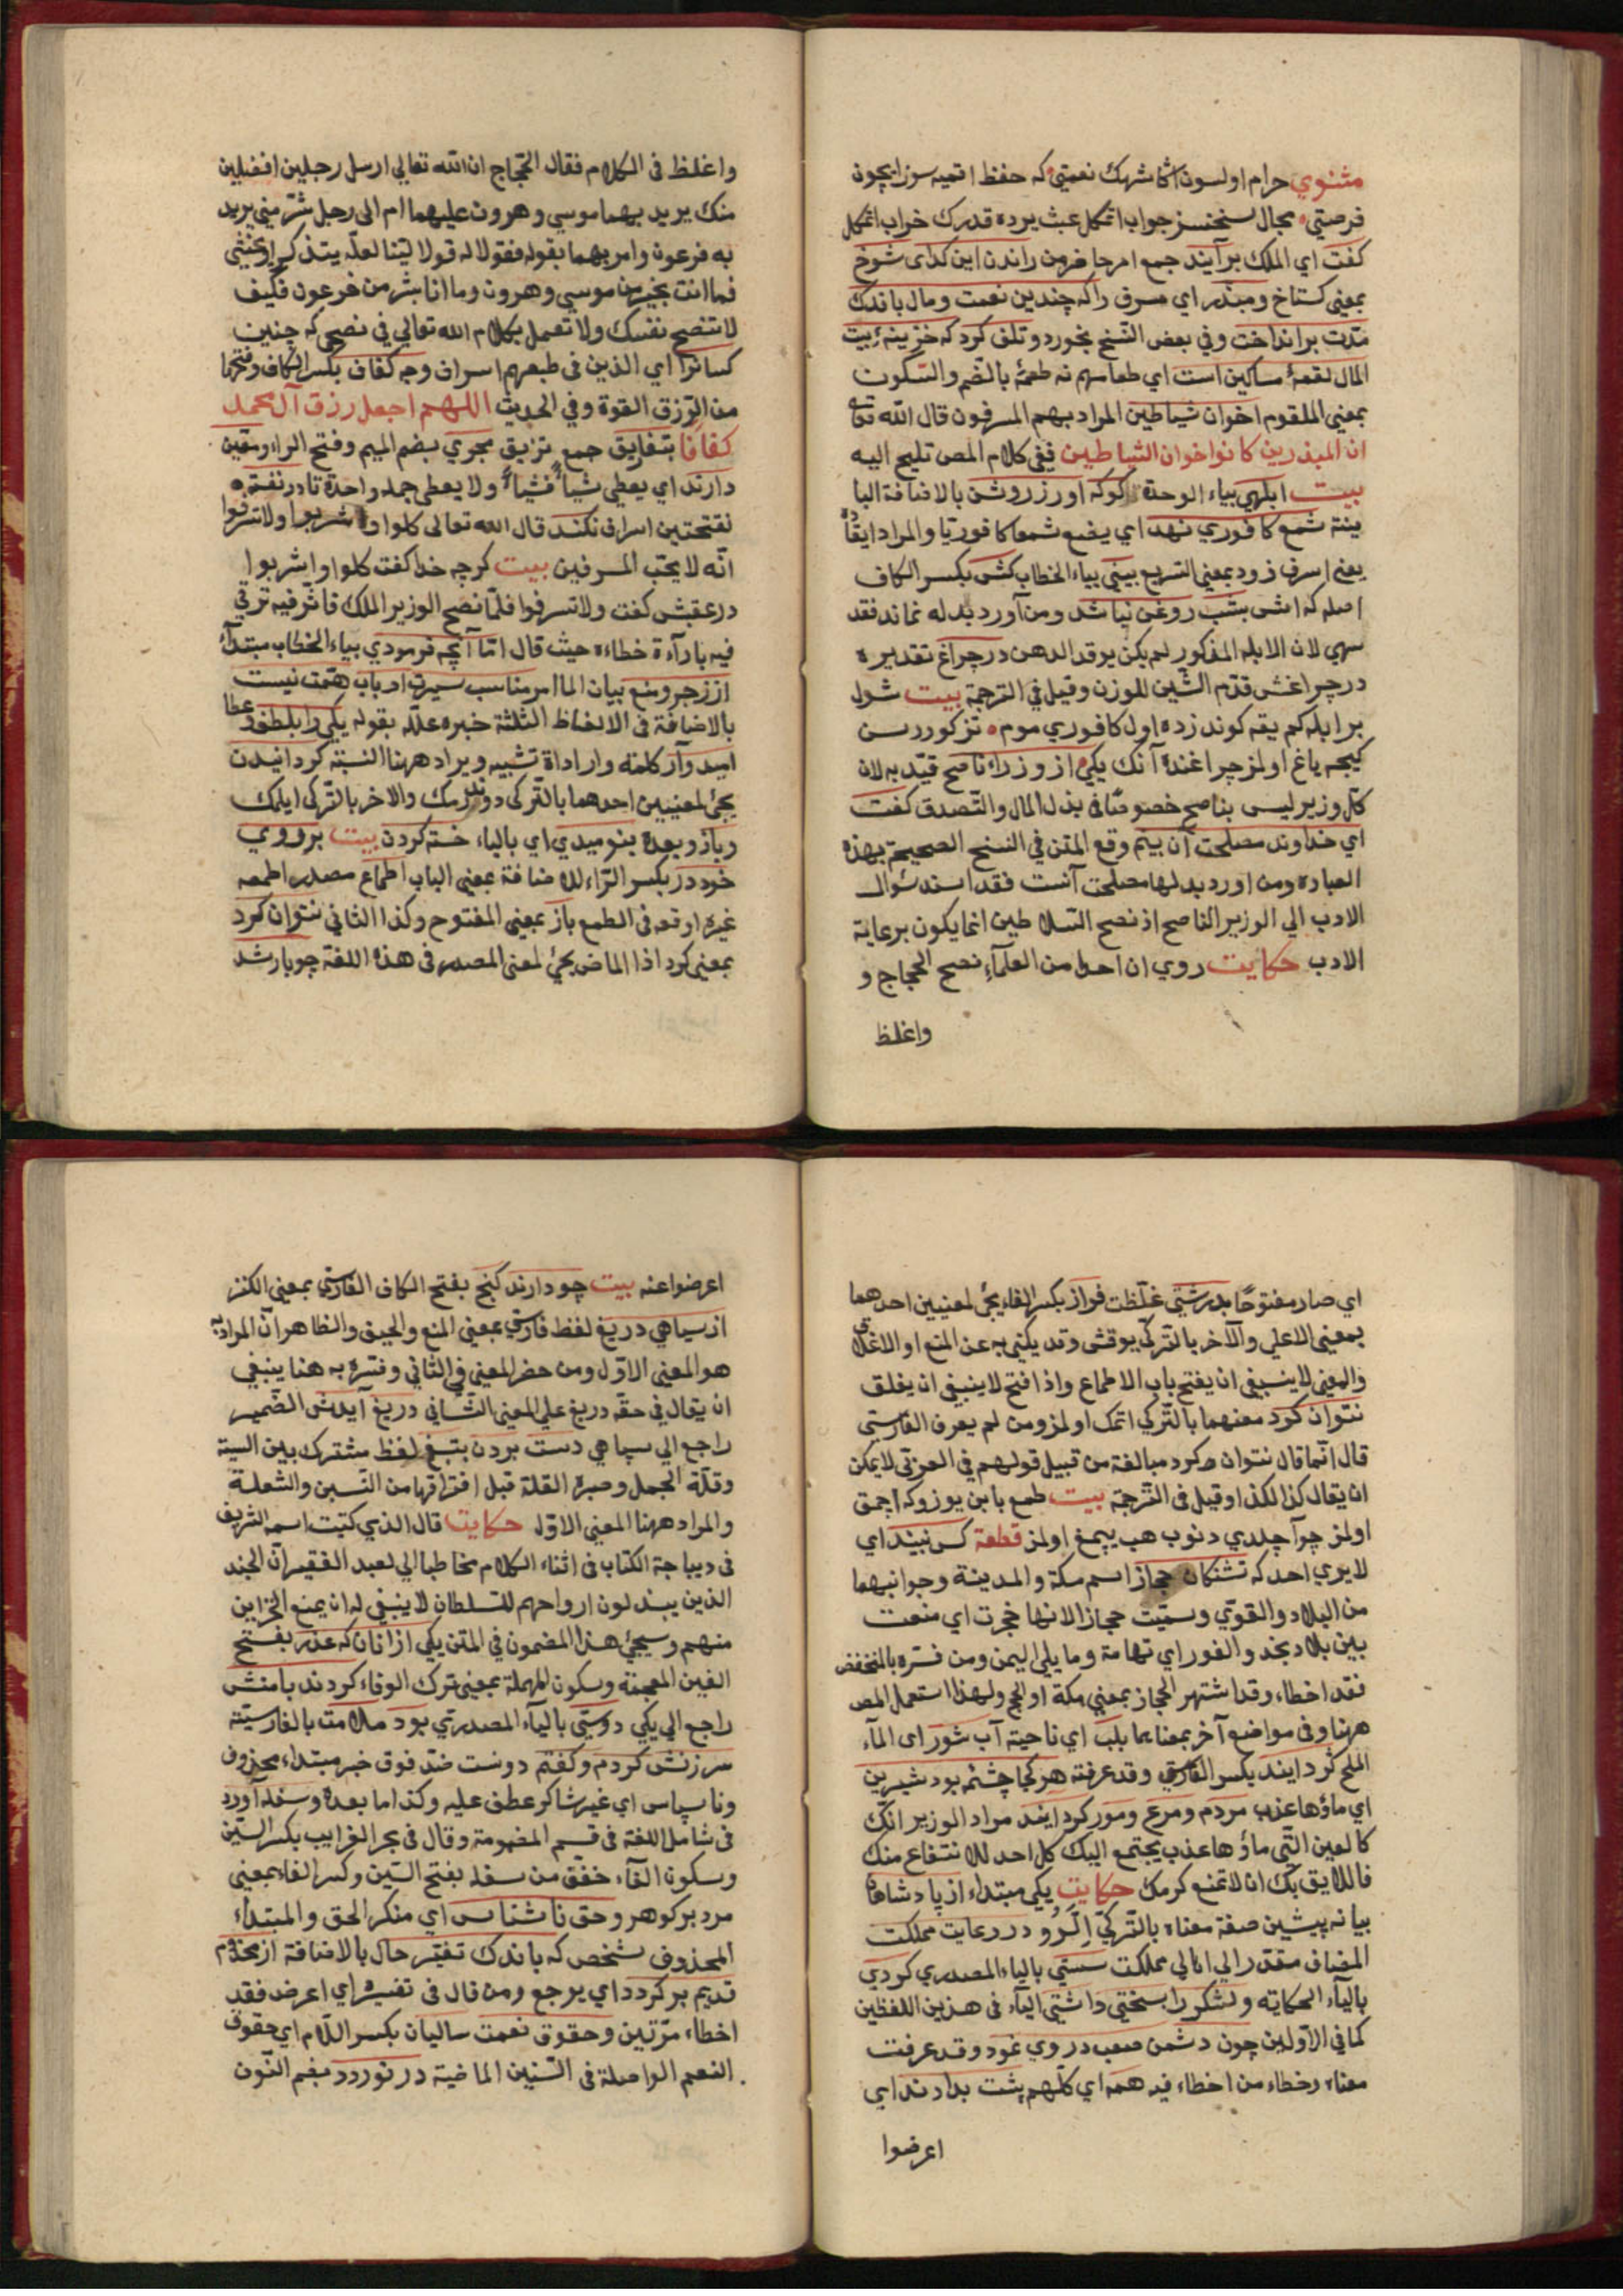 مثنوي حرام اولسون اكا شهك نعمتي كه حفظ اتميه سوز ايچون
فرصتي مجال سنخنسز جواب اتمكل عبث يرده قدرك خراب اتمكل
كفت اي الملك برآيند جمع امر حاضر من راندن اين كداى شوخ
بمعنى كستاخ ومبذر اي مسرف را كه چندين نعمت ومال باندك
مدّت برانداخت وفي بعض النسخ بخورد وتلف كرد كه خزينهٔ بيت
المال لقمهٔ مساكين است اي طعامهم نه طعمهٔ بالضم والسّكون
بمعنى الملقوم اخوان شياطين المراد بهم المسرفون قال الله تعالى
ان المبذرين كانوا اخوان الشياطين ففي كلام المص تلميح اليه
بيت ابلهي بياء الوحدة كوكه اورز روشن بالاضافة البيا
ينة شمع كافوري نهد اي يضع شمعا كافوريا والمراد ايقاده
يعنى اسرف زود بمعنى السريع بيني بياء الخطاب كش بكسر الكاف
اصله كه اش بشب روغن نباشد ومن آورد بدله نماند فقد
سهى لان الابله المذكور لم يكن يوقد الدهن در چراغ تقديره
در چراغش قدّم الشين للوزن وقيل في الترجمة بيت شول
بر ابله كم يقه كوندزده اول كافوري موم تز كوررسن
كيجه ياغ اولمز چراغنده آنك يكي از وزراء ناصح قيّد به لان
كل وزير ليس بناصح خصوصًا في بذل المال والتصدق كفت
اي خداوند مصلحت آن بينم وقع المتن في النسخ الصحيحة بهذه
العباره ومن اورد بدلها مصلحت آنست فقد اسند سؤال
الادب الى الوزير الناصح اذ نصح السلاطين انما يكون برعاية
الادب حكايت روي ان احدا من العلماء نصح الحجاج و
واغلظ
واغلظ فى الكلام فقال الحجاج ان الله تعالي ارسل رجلين افضلين
منك يريد بهما موسى وهرون عليهما ام الى رجل شرّ منى يريد
به فرعون وامر بهما بقوله فقولا له قولا لينا لعله يتذكر او يخشى
فما انت بخير من موسي وهرون وما انا بشر من فرعون فكيف
لا تنصح نفسك ولا تعمل بكلام الله تعالي في نصحى كه چنين
كسانرا اي الذين فى طبعهم اسراف وجه كفاف بكسر الكاف وفتحها
من الرزق القوة وفي الحديث اللهم اجعل رزق آل محمد
كفافا بتفاريق جمع تفريق مجري بضم الميم وفتح الراء ومعين
دارند اي يعطى شيأ فشيأ ولا يعطى جملة واحدة تا در نفقه
بفتحتين اسراف نكند قال الله تعالى كلوا واشربوا ولا تسرفوا
انّه لا يحب المسرفين بيت كرچه خدا كفت كلوا واشربوا
در عقبش كفت ولا تسرفوا فلمّا نصح الوزير الملك فاثر فيه ترقي
فيه بارآءة خطاءه حيث قال امّا آنچه فرمودي بياء الخطاب مبتدأ
از زجر ومنع بيان الما امر مناسب سيرت ارباب همّت نيست
بالاضافة فى الالفاظ الثلثة خبره علّله بقوله يكي را بلطف وعطا
اميدوار كلمة وار اداة تشبيه ويراد ههنا النسبة كردانيدن
يجئ لمعنيين احدهما بالتركى دوندرمك والاخر بالتركى ايلمك
وباز وبعده بنوميدي اي بالياء خسته كردن بيت بروي
خود در بكسر الرّاء للاضافة بمعنى الباب اطماع مصدر اطمعه
غيره اوقعه فى الطمع باز بمعنى المفتوح وكذا الثاني نتوان كرد
بمعنى كرد اذا الماضى يجئ لمعنى المصدر فى هذه اللغة چو باز شد
اي صار مفتوحًا بدرشتي غلّظت فراز بكسر الفاء يجئ لمعنيين احدهما
بمعنى الاعلى والآخر بالتركي يوقش وقد يكنى به عن المنع او الاغلاق
والمعنى لا ينبغى ان يفتح باب الاطماع واذا فتح لا ينبغى ان يغلق
نتوان كرد معنهما بالتركي اتمك اولمز ومن لم يعرف الفارسي
قال انّما قال نتوان كرد مبالغة من قبيل قولهم فى العربي لا يمكن
ان يقال كذا لكذا وقيل فى الترجمة بيت طمع بابن يوزوكه اچمق
اولمز چو آچلدي دنوب هب ييمغ اولمز قطعة كس نبيند اي
لا يري احد كه تشنكان حجاز اسم مكة والمدينة وجوانبهما
من البلاد والقوى وسميّت حجازا لانها حجزت اي منعت
بين بلاد نجد والغور اي تهامة وما يلى اليمن ومن فسّره بالمنخفض
فقد اخطاء وقد اشتهر الحجاز بمعنى مكة او الحج ولهذا استعمل المص
ههنا وفى مواضع آخر بمعناهما بلب اي ناحية آب شور اى المآء
الملح كرد ايند بكسر الفارسي وقد عرفته هر كجا چشمه بود شيرين
اي ماؤها عذب مردم ومرغ ومور كرد ايند مراد الوزير انّك
كالعين الّتى ماؤها عذب يجتمع اليك كل احد للانتفاع منك
فاللايق بك ان لا تمنع كرمك حكايت يكي مبتداء از پادشاهان
بيانه پيشين صفة معناه بالتركي اِلَرُو در رعايت مملكت
المضاف مقدر الي اهالي مملكت سستي بالياء المصدري كردي
بالياء الحكاية ولشكر را بسختي داشتى الياء فى هذين اللفظين
كما في الاولين چون دشمن صعب در وي نمود وقد عرفت
معناه وخطاء من اخطاء فيه همه اي كلّهم پشت بدادند اي
اعرضوا
اعرضوا عنه بيت چو دارند كنج بفتح الكاف الفارسي بمعنى الكنز
از سپاهي دريغ لفظ فارسي بمعنى المنع والحيف والظاهر انّ المراد به
هو المعنى الاوّل ومن حضر المعنى في الثاني وفسّره به هنا ينبغي
ان يقال في حقّه دريغ علي المعنى الثّاني دريغ آيدش الضمير
راجع الى سپاهي دست بردن بتيغ لفظ مشترك بين السية
وقلّة الجمل وصبرة القلة قبل افتراقها من السّين والشعلة
والمراد ههنا المعنى الاوّل حكايت قال الذي كتبت اسمه الشريف
فى ديباجة الكتاب فى اثناء الكلام مخاطبا الي لعبد الفقير انّ الجند
الذين يبذلون ارواحهم للسلطان لا ينبغى له ان يمنع الخزاين
منهم وسيجئ هذا المضمون في المتن يكي از انان كه غدر بفتح
الغين المعجمة وسكون المهملة بمعنى ترك الوفاء كردند بامنش
راجع الي يكي دوستى بالياء المصدري بود ملامت بالفارسيّة
سرزنش كردم وكفتم دونست ضدّ فوق خبر مبتداء محذوف
وناسپاس اي غير شاكر عطف عليه وكذا ما بعده وسفله آورد
فى شامل اللغة فى قسم المضمومة وقال فى بحر الغرايب بكسر السّين
وسكون الفآء خفف من سفله بفتح السّين وكسر الفاء بمعنى
مرد بركوهر وحق ناشناس اي منكر الحق والمبتداء
المحذوف شخص كه باندك تغيّر حال بالاضافة از مخدوم
قديم بركردد اي يرجع ومن قال فى تفسيره اي اعرض فقد
اخطاء مرّتين وحقوق نعمت ساليان بكسر اللّام اي حقوق
النعم الواصلة فى السّنين الماضية در نوردد بضم النّون